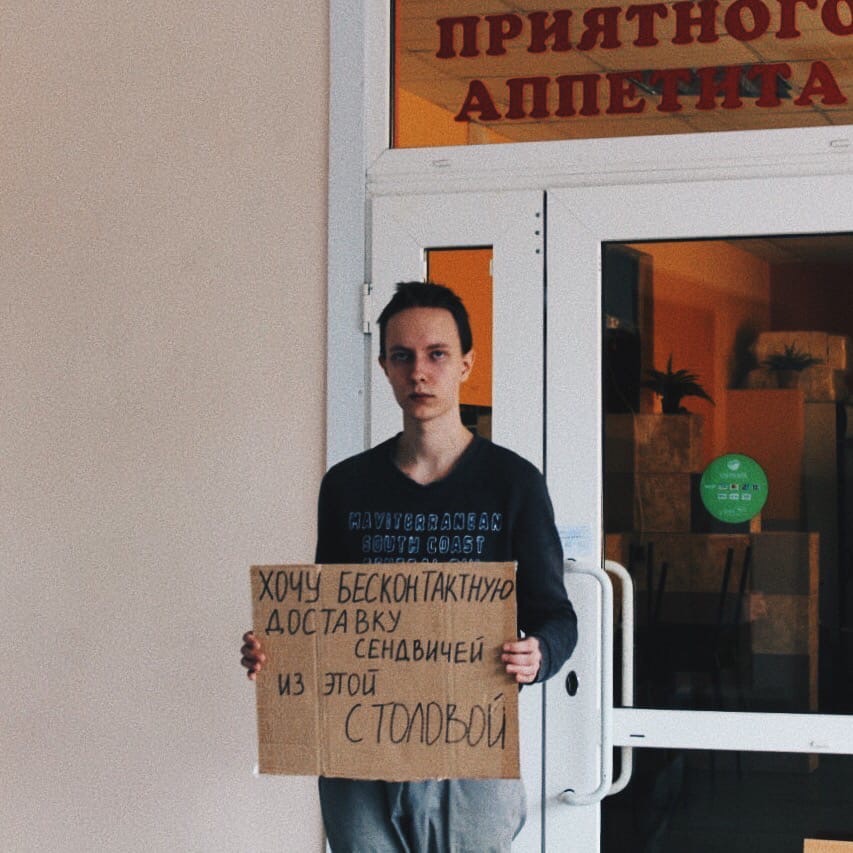 ПРИЯТНОГО
АППЕТИТА
MAVITERRANEAN
SOUTH COAST
ХОЧУ БЕСКОНТАКТНУЮ
ДОСТАВКУ
СЕНДВИЧЕЙ
ИЗ ЭТОЙ
СТОЛОВОЙ